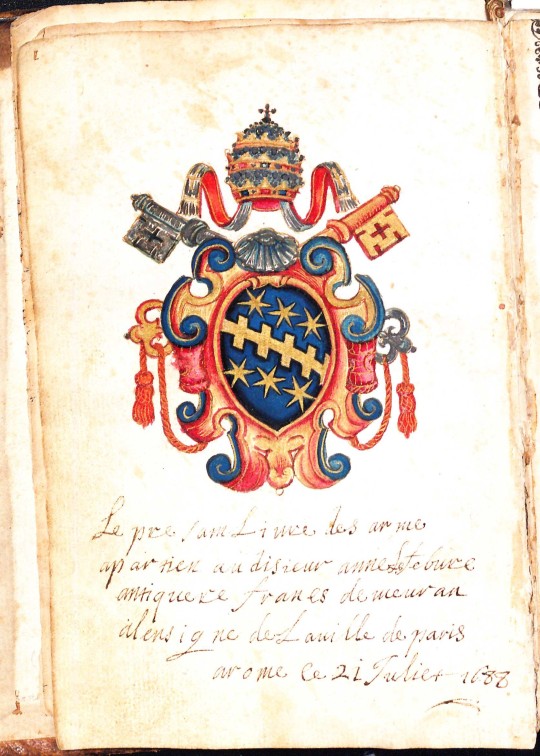 Le pre sam Liure des arme
apartien au disieur anne
antiquere frances demeuran
alensigne de La uille de paris
a rome ce 21 Julier 1688